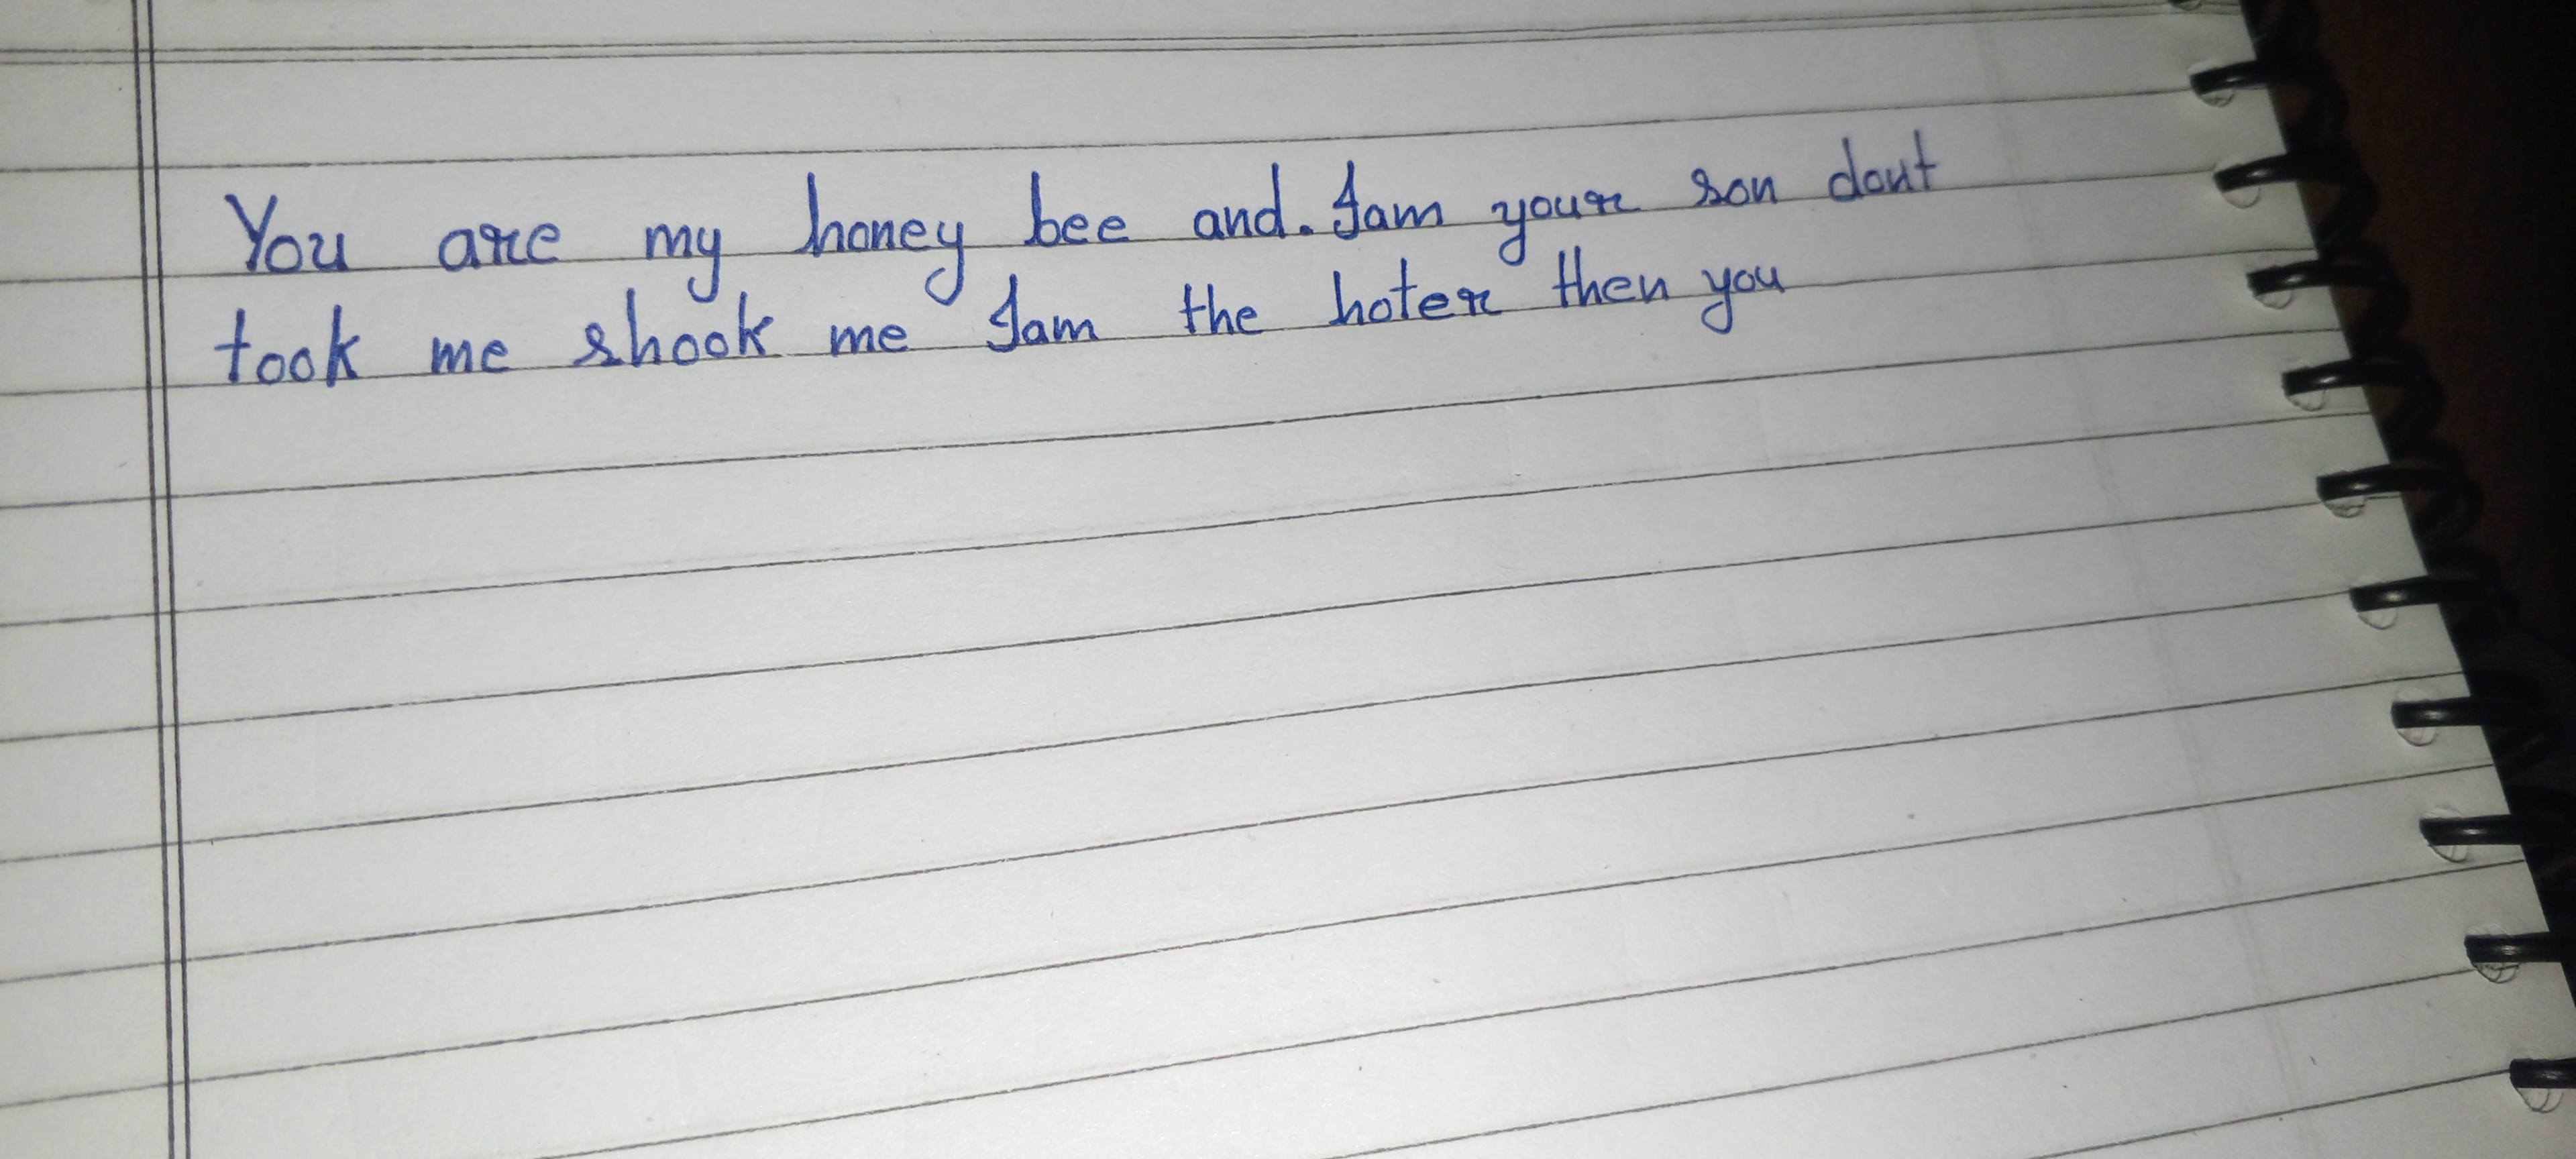 You are my honey bee and. I am your son dont
took me shook me I am the hoter then you